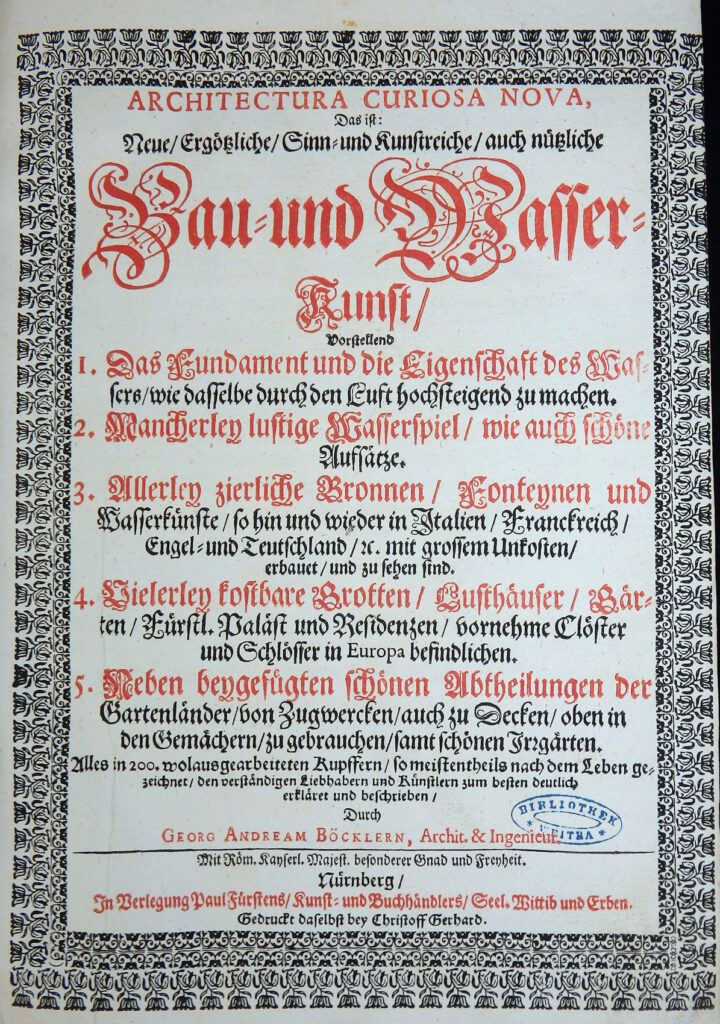 ARCHITECTURA CURIOSA NOVA,
Das ist:
Neue/ Ergötzliche/ Sinn- und Kunstreiche/ auch nützliche
Bau- und Wasser-
Kunst/
Vorstellend
1. Das Fundament und die Eigenschaft des Was-
sers/ wie dasselbe durch den Luft hochsteigend zu machen.
2. Mancherley lustige Wasserspiel/ wie auch schöne
Aufsätze.
3. Allerley zierliche Bronnen/ Fonteynen und
Wasserkünste/ so hin und wieder in Italien/ Franckreich/
Engel- und Teutschland/ ꝛc. mit grossem Unkosten/
erbauet/ und zu sehen sind.
4. Vielerley kostbare Grotten/ Lusthäuser/ Gär-
ten/ Fürstl. Paläst und Residenzen/ vornehme Clöster
und Schlösser in Europa befindlichen.
5. Neben beygefügten schönen Abtheilungen der
Gartenländer/ von Zugwercken/ auch zu Decken/ oben in
den Gemächern/ zu gebrauchen/ samt schönen Irrgärten.
Alles in 200. wolausgearbeiteten Kupffern/ so meistentheils nach dem Leben ge-
zeichnet/ den verständigen Liebhabern und Künstlern zum besten deutlich
erkläret und beschrieben/
Durch
GEORG ANDREAM BÖCKLERN, Archit. & Ingenieur.
BIBLIOTHEK
* WEITRA *
Mit Röm. Kayserl. Majest. besonderer Gnad und Freyheit.
Nürnberg/
In Verlegung Paul Fürstens/ Kunst- und Buchhändlers/ Seel. Wittib und Erben.
Gedruckt daselbst bey Christoff Gerhard.